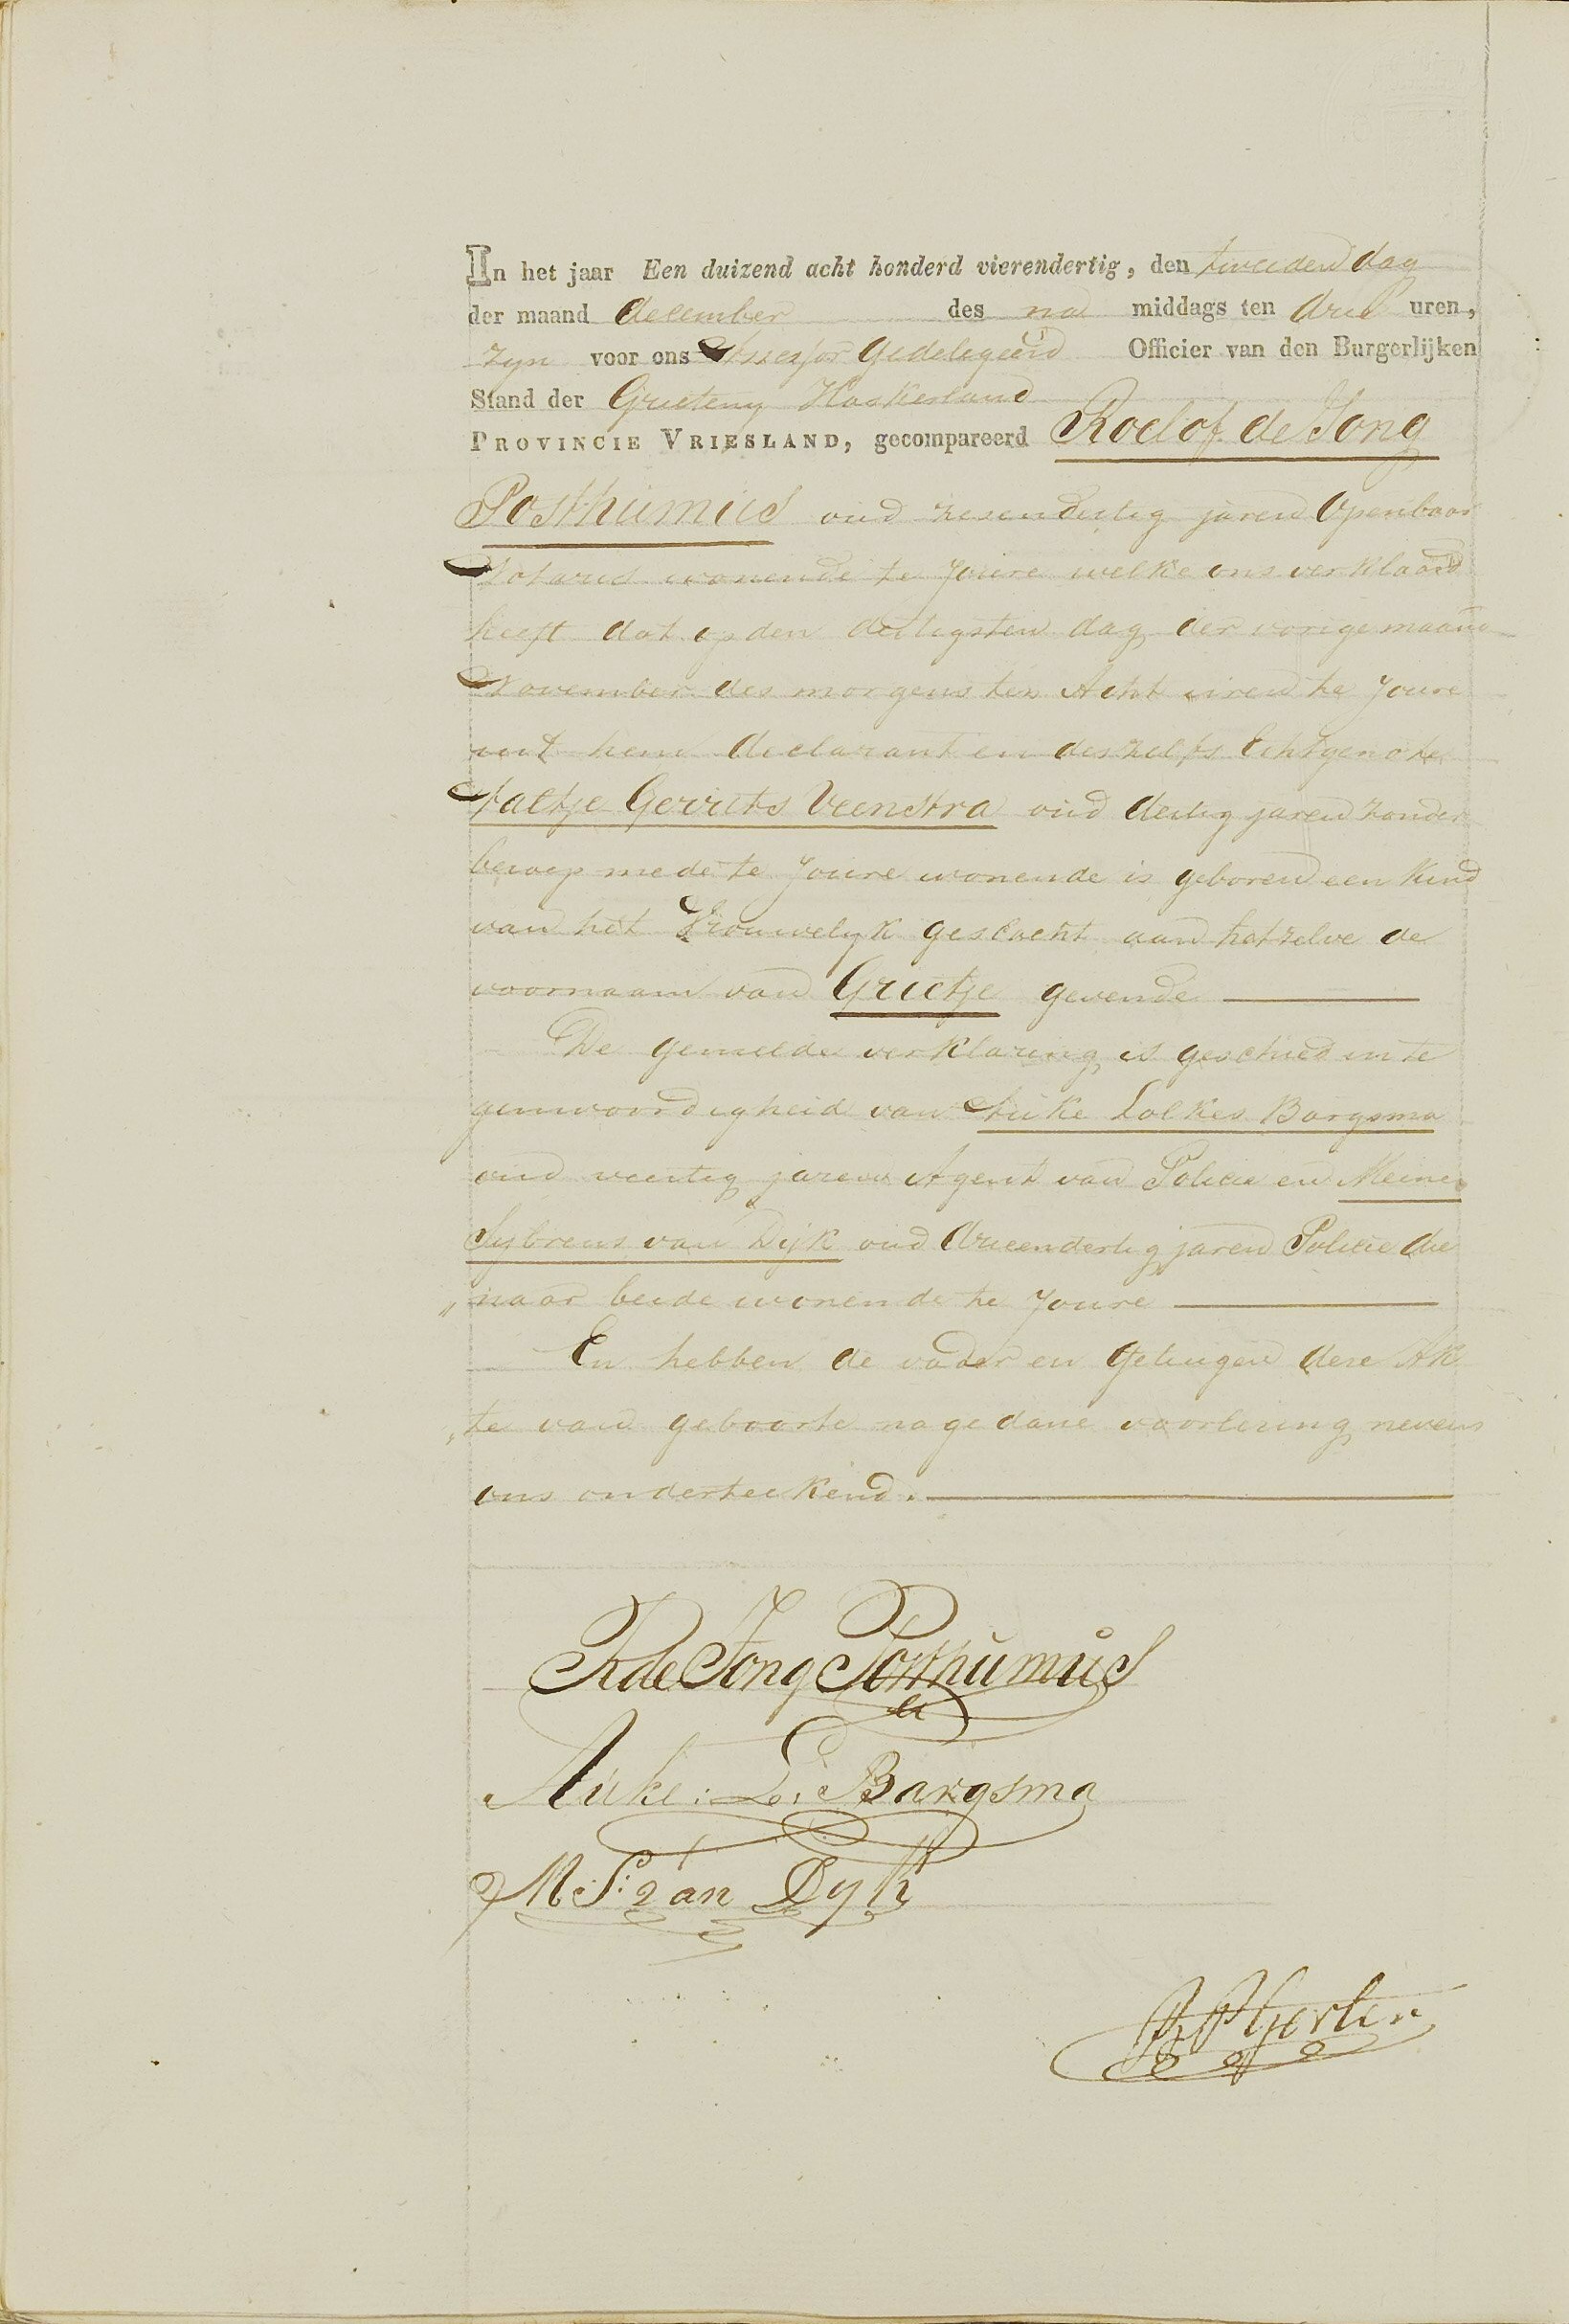 In het jaar Een duizend acht honderd vierendertig, den tweeden dag
der maand december des na middags ten drie uren,
zijn voor ons Assessor Gedelegeerd Officier van den Burgerlijken
Stand der Grieteny Haskerland
PROVINCIE VRIESLAND, gecompareerd Roelof de Jong
Posthumus oud zesendertig jaren Openbaar
Notaris wonende te Joure welke ons verklaard
heeft dat op den dertigsten dag der vorige maand
November des morgens ten Acht uren te Joure
uit hem declarant en deszelfs Echtgenote
Aaltje Gerrits Veenstra oud dertig jaren zonder
beroep mede te Joure wonende is geboren een kind
van het Vrouwelyk geslacht aan hetzelve de
voornaam van Grietje gevende
De gemelde verklaring is geschied in te
genwoordigheid van Auke Lolkes Bargsma
oud veertig jaren Agent van Policie en Meine
Sijbrens van Dijk oud drieendertig jaren Policie die
„naar beide wonende te Joure
En hebben de vader en Getuigen deze Ak
„te van geboorte na gedane voorlezing nevens
ons onderteekend.
R de Jong Posthumus
Auke: L: Bargsma
M: S: van Dyk
Gorter